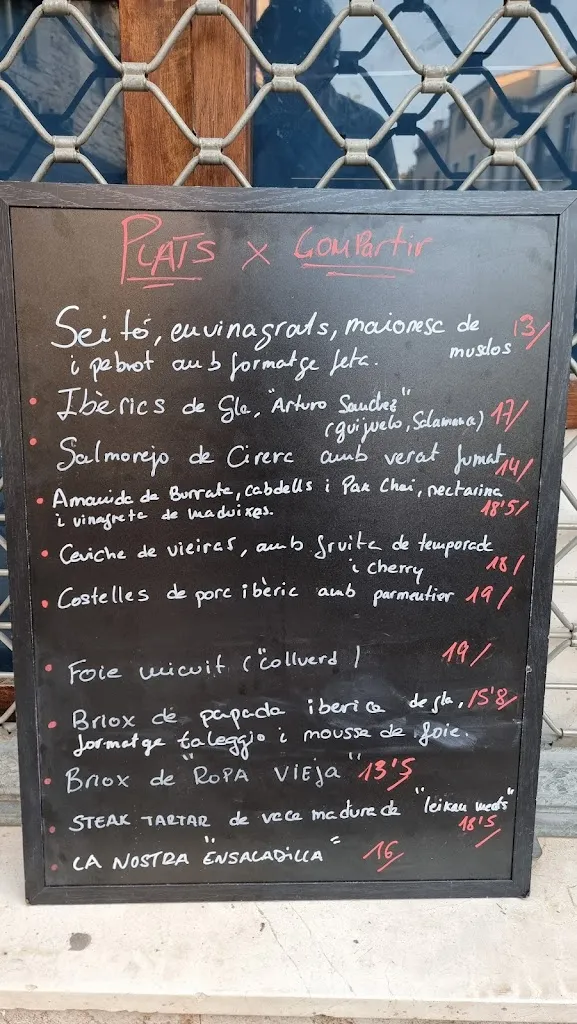 PLATS x Compartir
Seitó, envinagrats, maionesc de 13/
musclos
i pebrot amb formatge feta.
Ibèrics de Gla, "Arturo Sanchez"
(guijuelo, Salamanca) 17/
Salmorejo de Cirerc amb verat fumat
14/
Amanida de Burrata, cabdells i Pak Choi, nectarina
i vinagreta de maduixes. 18'5/
Ceviche de vieiras, amb fruita de temporada
i cherry 18/
Costelles de porc ibèric amb parmentier 19/
Foie micuit ("Collverd) 19/
Briox de papada iberica de gla, 15'8/
formatge taleggio i mousse de foie.
Briox de "ROPA VIEJA" 13'5/
STEAK TARTAR de vaca madurada "leikan meats"
18'5/
LA NOSTRA "ENSALADILLA" 16/